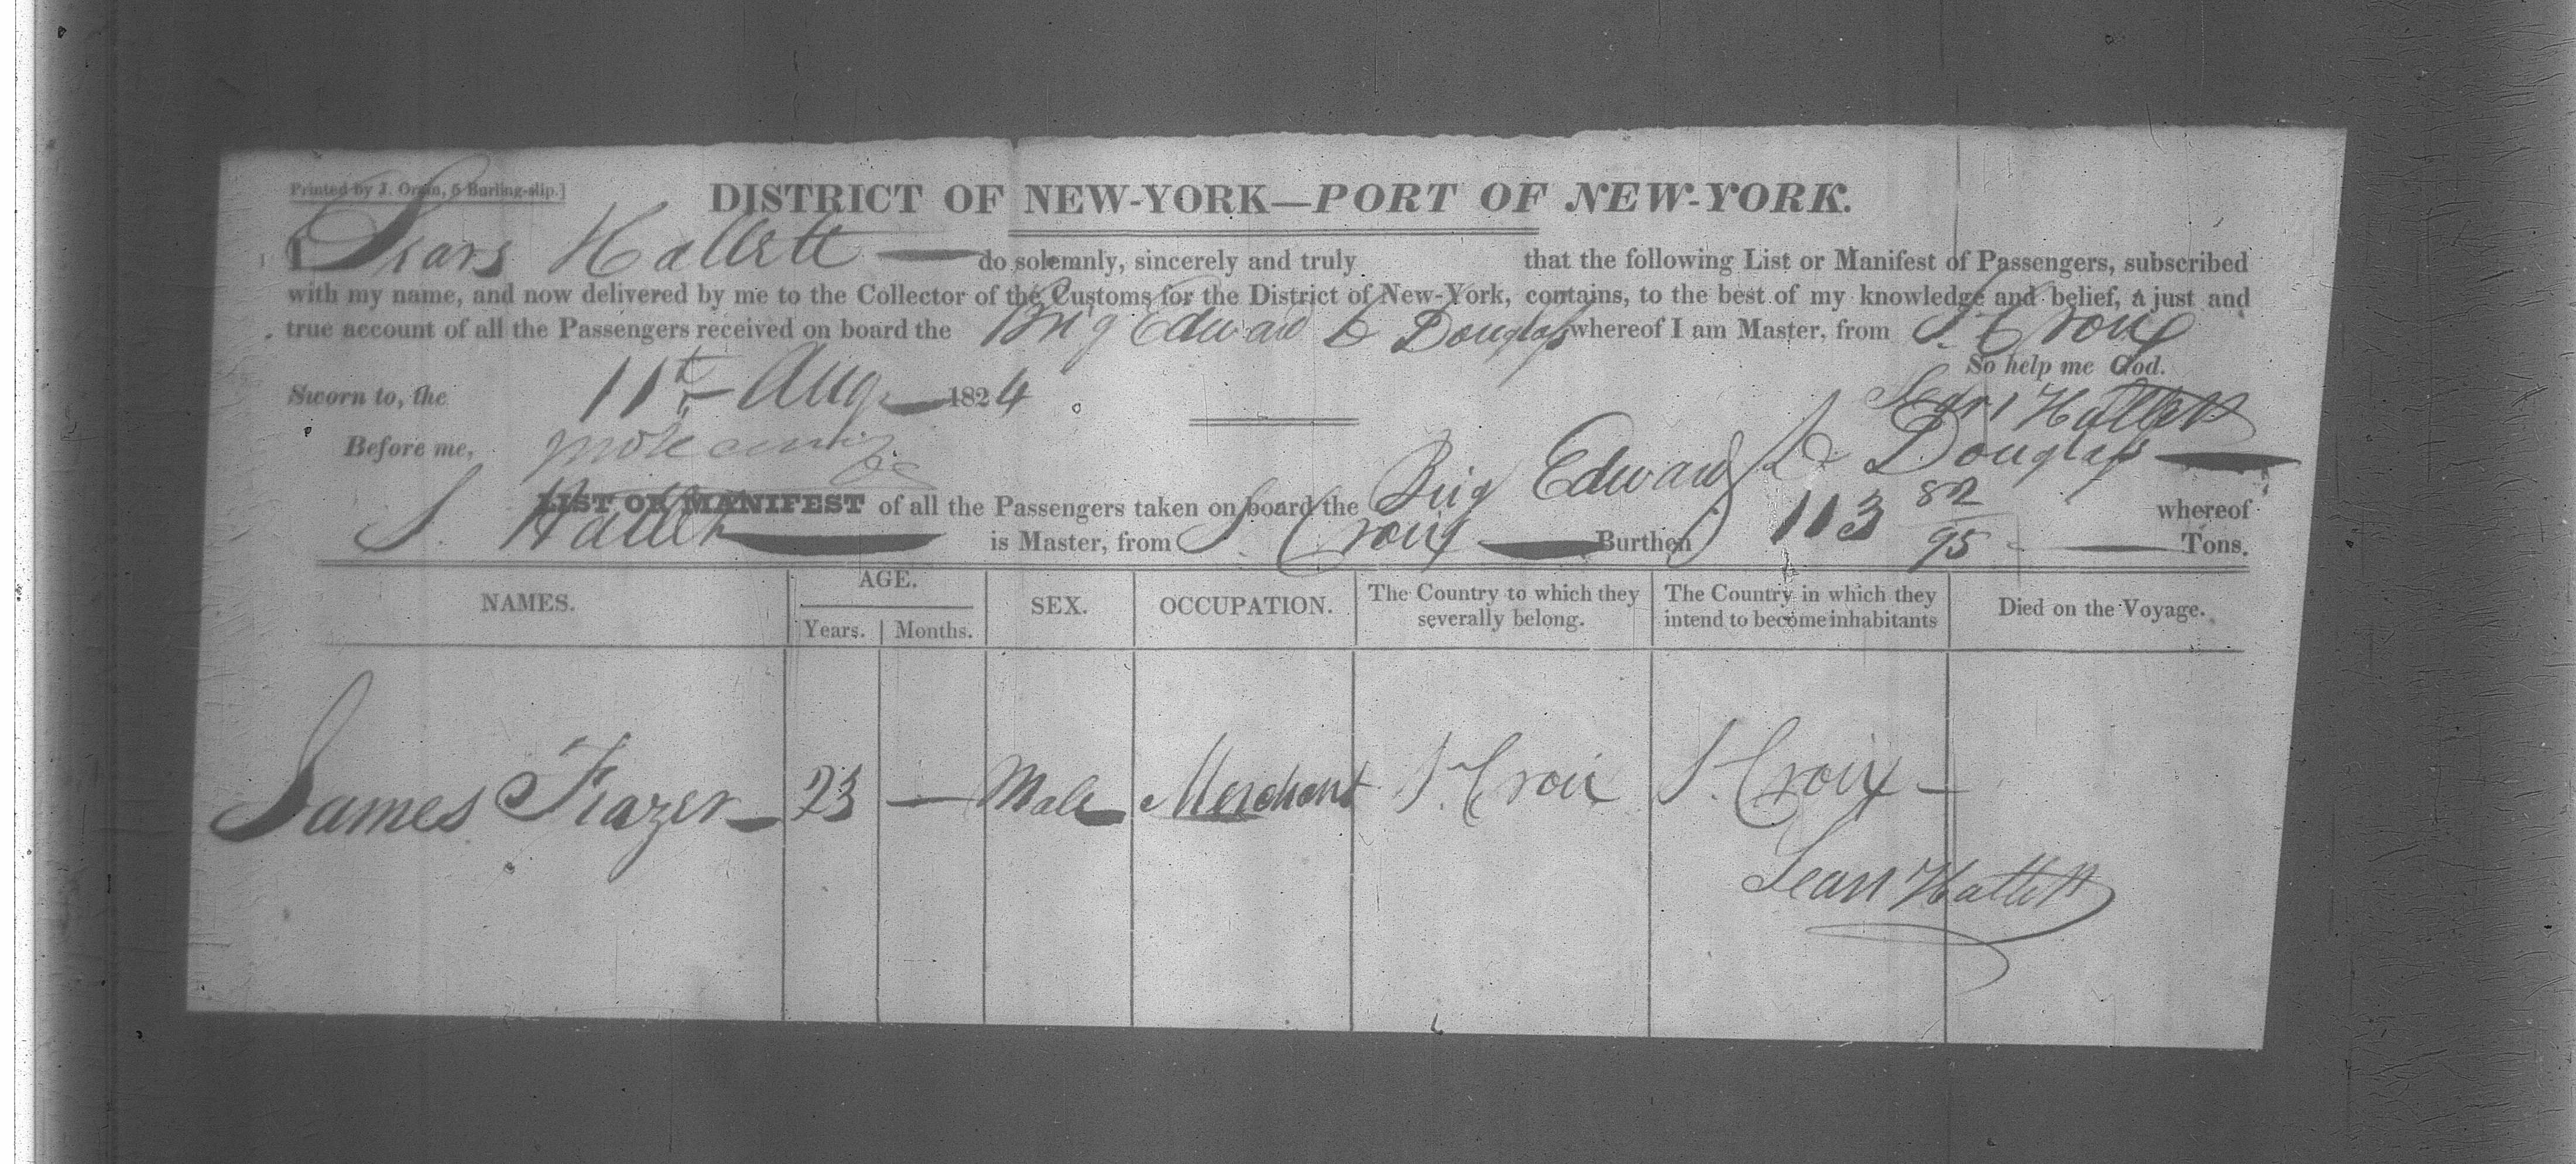 Printed by J. Oram, 5 Burling-slip.]
DISTRICT OF NEW-YORK—PORT OF NEW-YORK.
I Sears Hallett — do solemnly, sincerely and truly that the following List or Manifest of Passengers, subscribed
with my name, and now delivered by me to the Collector of the Customs for the District of New-York, contains, to the best of my knowledge and belief, a just and
true account of all the Passengers received on board the Brig Edward & Douglass whereof I am Master, from S. Croix
So help me God.
Sworn to, the 11th Aug 1824
Sears Hallett
Before me,
LIST OR MANIFEST of all the Passengers taken on board the Brig Edward & Douglass — whereof
S. Hallett — is Master, from S. Croix — Burthen 113 82/95 — Tons.
NAMES. AGE. SEX. OCCUPATION. The Country to which they severally belong. The Country in which they intend to become inhabitants Died on the Voyage.
Years. Months.
James Frazer — 23 — Male Merchant S. Croix S. Croix —
Sears Hallett